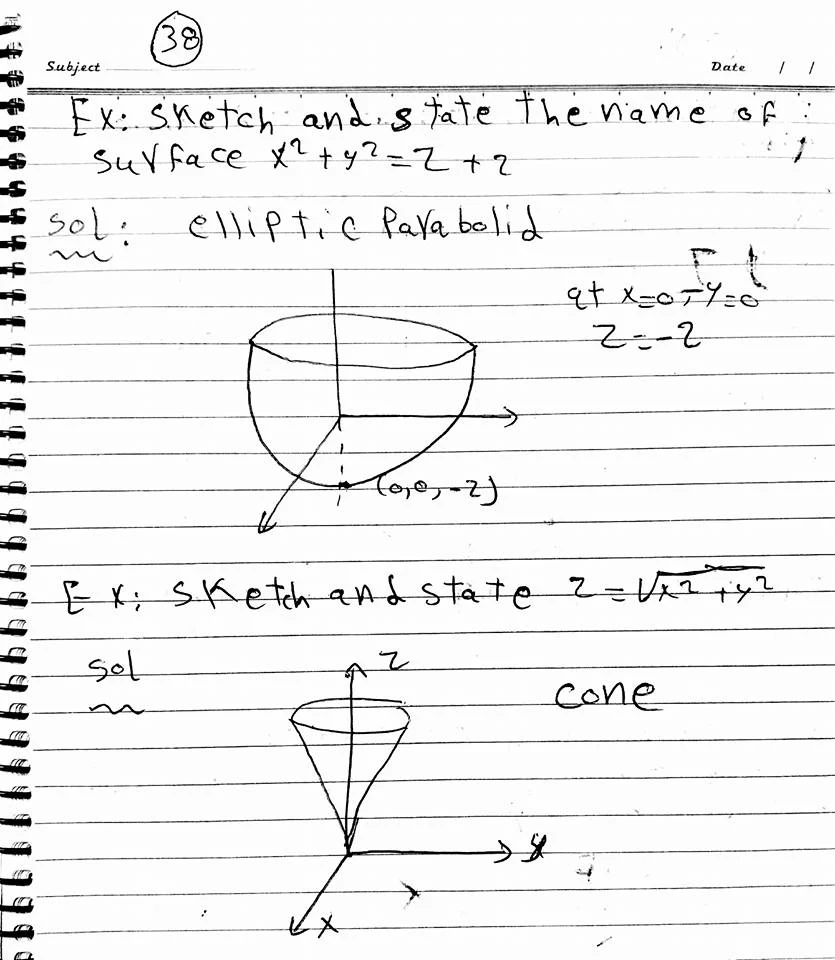 38
Subject
Date / /
Ex: sketch and state the name of
surface x²+y²=z+2
sol: elliptic Parabolid
at x=0, y=0
z=-2
(0,0,-2)
Ex: sketch and state z=√x²+y²
sol
z
cone
y
x